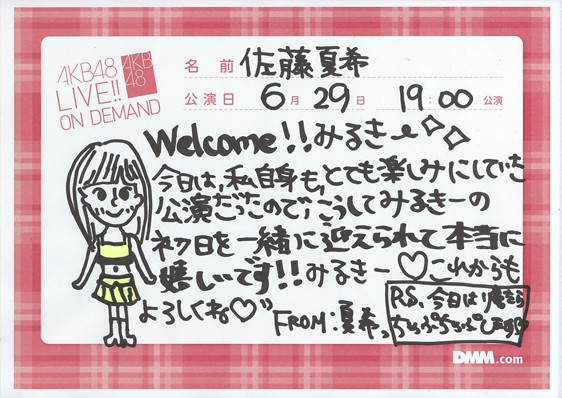 AKB48
LIVE!!
ON DEMAND
AKB
48
名 前 佐藤夏希
公演日 6月 29日 19:00 公演
Welcome!!みるきー
今日は、私自身も、とても楽しみにしていた
公演だったので、こうしてみるきーの
初日を一緒に迎えられて本当に
嬉しいです!!みるきー♡これからも
よろしくね♡
FROM:夏希。
P.S. 今日は
DMM.com